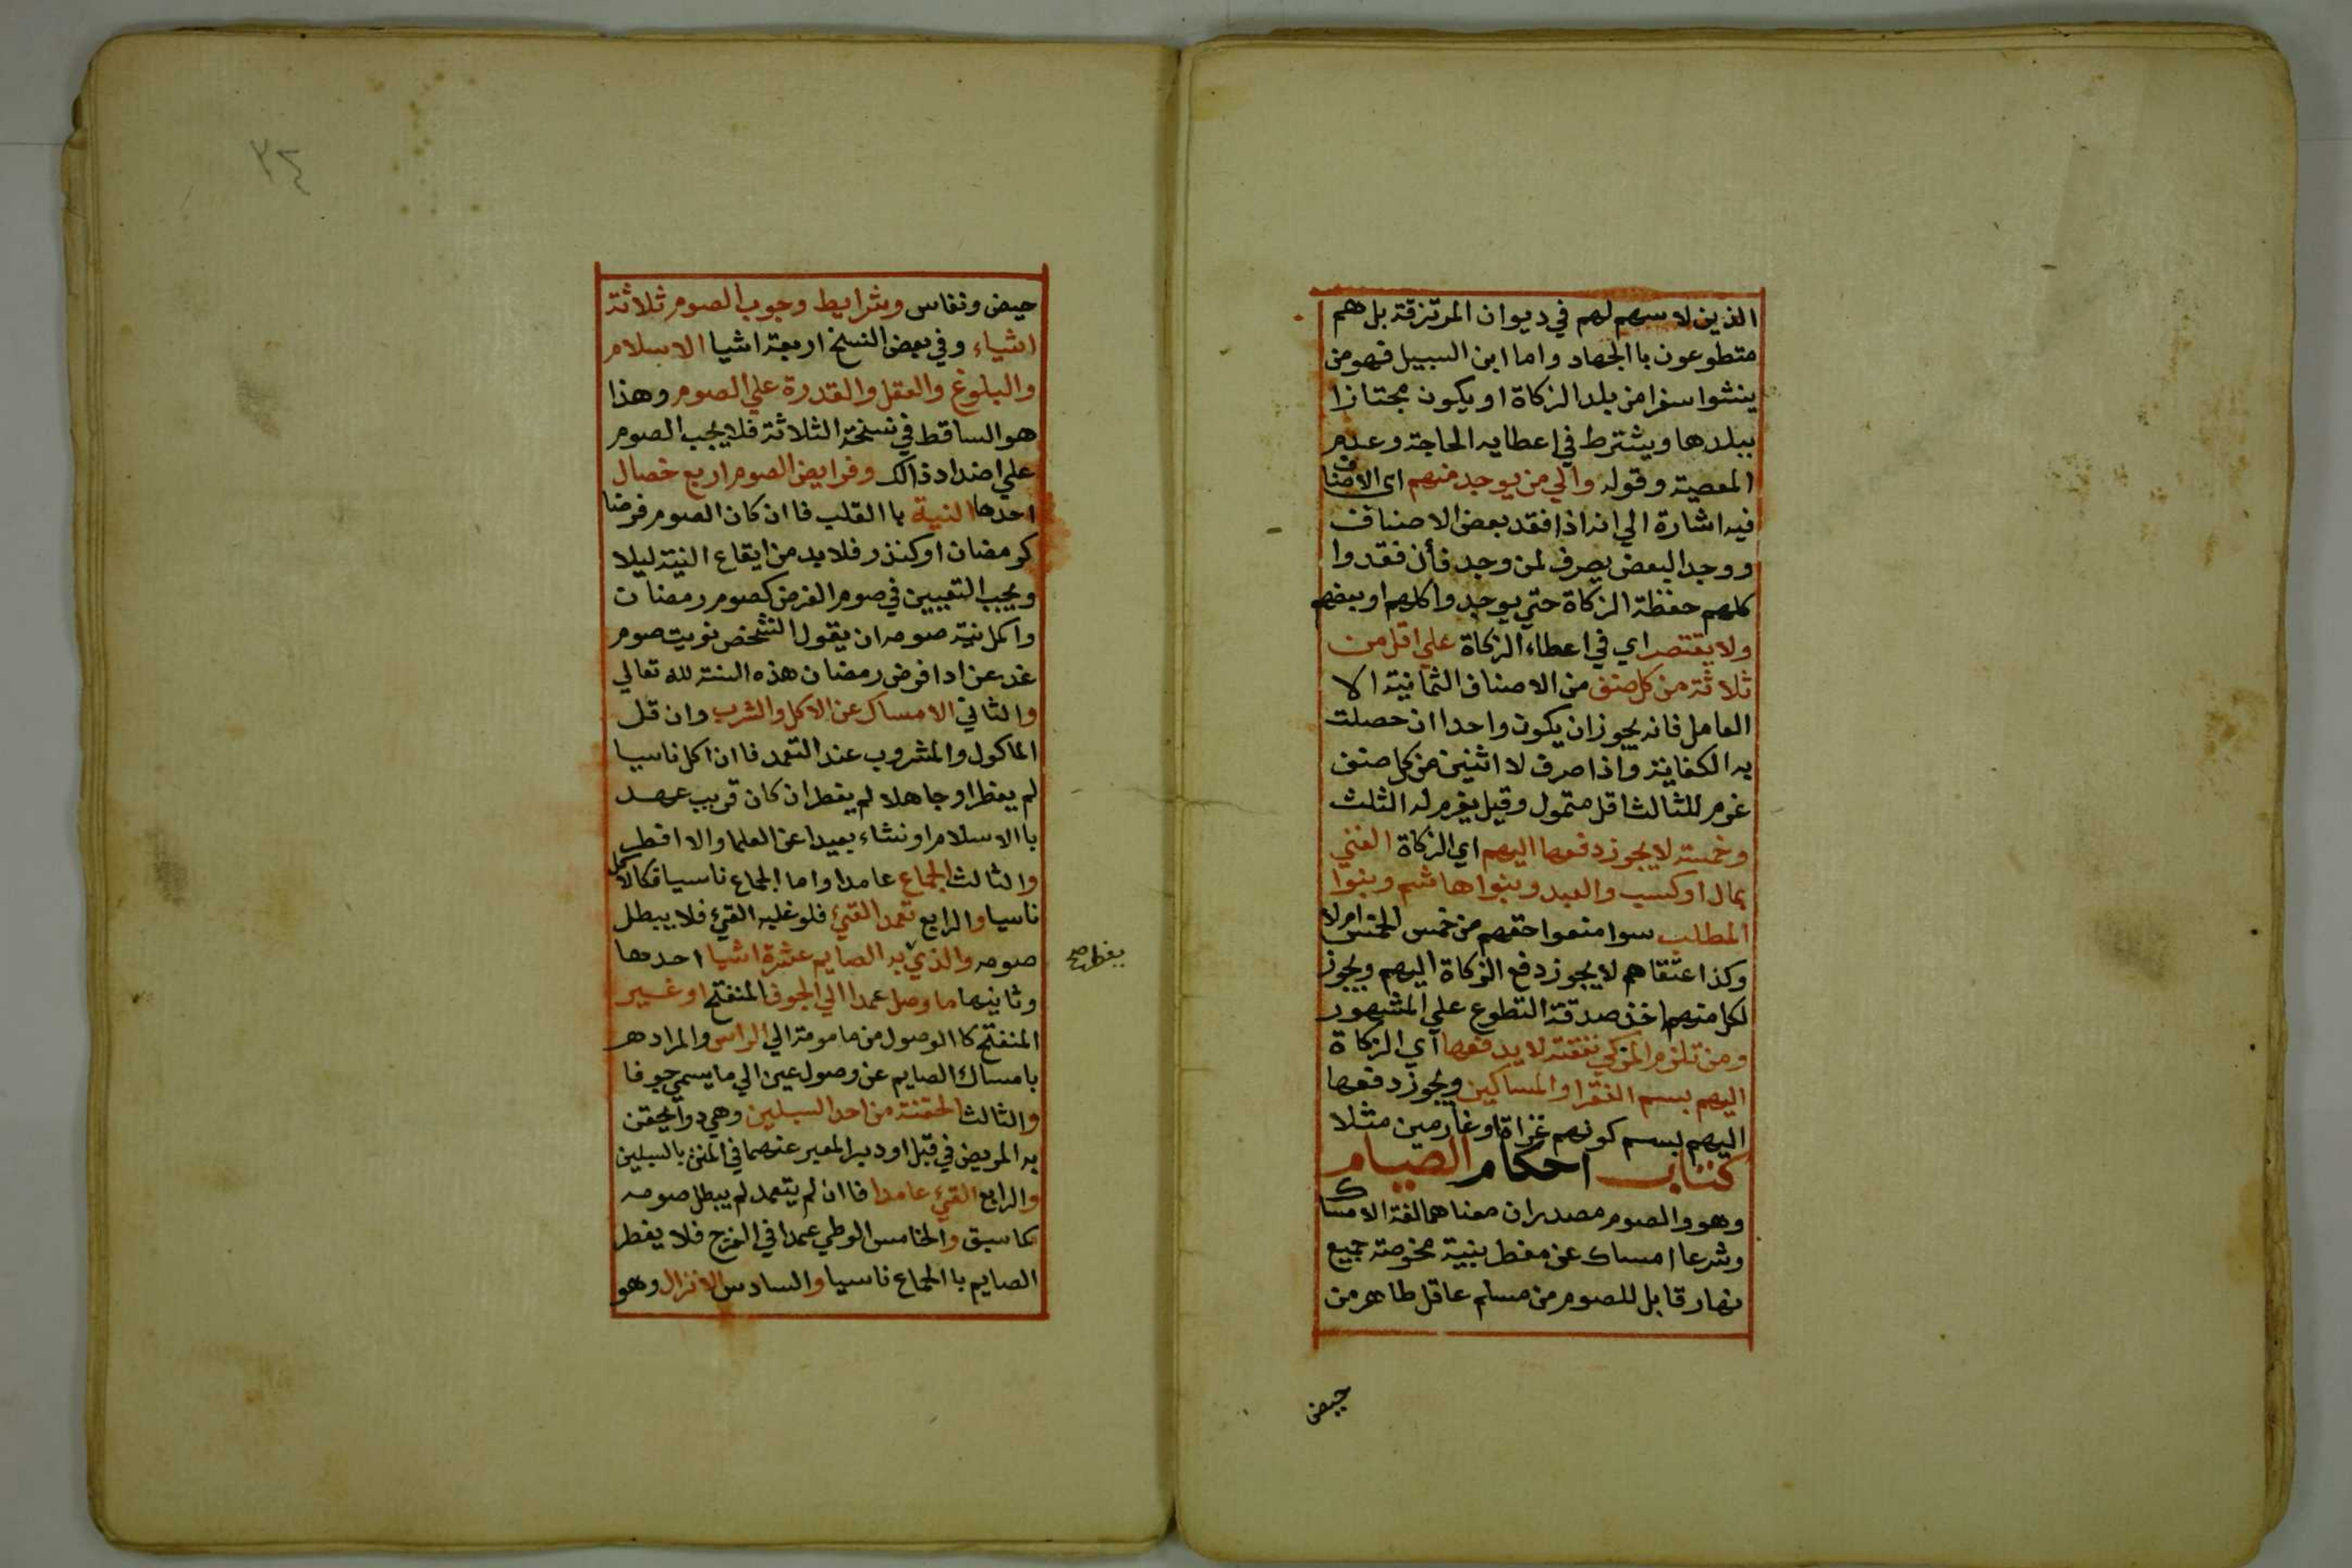 الذين لا سهم لهم في ديوان المرتزقة بل هم
متطوعون باالجهاد واما ابن السبيل فهو من
ينشوا سفرا من بلد الزكاة او يكون مجتازا
ببلدها ويشترط في اعطايه الحاجة وعدم
المعصية وقوله والي من يوجد منهم اي الاصناف
فيه اشارة الي انه اذا فقد بعض الاصناف
ووجد البعض يصرف لمن وجد فأن فقدوا
كلهم حفظة الزكاة حتي يوجدوا كلهم او بعضهم
ولا يقتصر اي في اعطاء الزكاة علي اقل من
ثلاثة من كل صنف من الاصناف الثمانية الا
العامل فانه يجوز ان يكون واحدا ان حصلت
به الكفاية واذا صرف لا اثنين من كل صنف
غرم للثالث اقل متمول وقيل يغرم له الثلث
وخمسة لا يجوز دفعها اليهم اي الزكاة الغني
بمال او كسب والعبد وبنوا هاشم وبنوا
المطلب سوا منعوا حقهم من خمس الخمس ام لا
وكذا عتقاهم لا يجوز دفع الزكاة اليهم ويجوز
لكل منهم اخذ صدقة التطوع علي المشهور
ومن تلزم المزكي نفقته لا يدفعها اي الزكاة
اليهم بسم الفقرا والمساكين ويجوز دفعها
اليهم بسم كونهم غزاة او غارمين مثلا
كتاب احكام الصيام
وهو والصوم مصدران معناهما لغة الامساك
وشرعا امساك عن مفطر بنية مخصوصة جميع
نهار قابل للصوم من مسلم عاقل طاهر من
حيض
٣٤
حيض ونفاس وشرايط وجوب الصوم ثلاثة
اشياء وفي بعض النسخ اربعة اشيا الاسلام
والبلوغ والعقل والقدرة علي الصوم وهذا
هو الساقط في نسخة الثلاثة فلا يجب الصوم
علي اضداد ذالك وفرايض الصوم اربع خصال
احدها النية باالقلب فاان كان الصوم فرضا
كرمضان او كنذر فلا بد من ايقاع النية ليلا
ويجب التعيين في صوم الفرض كصوم رمضان
واكمل نية صومه ان يقول الشخص نويت صوم
غد عن ادا فرض رمضان هذه السنة لله تعالي
والثاني الامساك عن الاكل والشرب وان قل
الماكول والمشروب عند التعمد فاان اكل ناسيا
لم يفطر او جاهلا لم يفطر ان كان قريب عهد
باالاسلام او نشاء بعيدا عن العلما والا افطر
والثالث الجماع عامدا واما الجماع ناسيا فكالاكل
ناسيا والرابع تعمد القيء فلو غلبه القيء فلا يبطل
صومه والذي به الصايم عشرة اشيا احدها
يفطر صح
وثانيها ما وصل عمدا الي الجوف المنفتح او غير
المنفتح كاالوصول من مامومة الي الراس والمراد هر
بامساك الصايم عن وصول عين الي ما يسمي جوفا
والثالث الحقنة من احد السبيلين وهي دوآ يحقن
به المريض في قبل او دبر المعبر عنهما في المتن بالسبيلين
والرابع القيء عامدا فاان لم يتعمد لم يبطل صومه
كما سبق والخامس الوطي عمدا في الفرج فلا يفطر
الصايم باالجماع ناسيا والسادس الانزال وهو